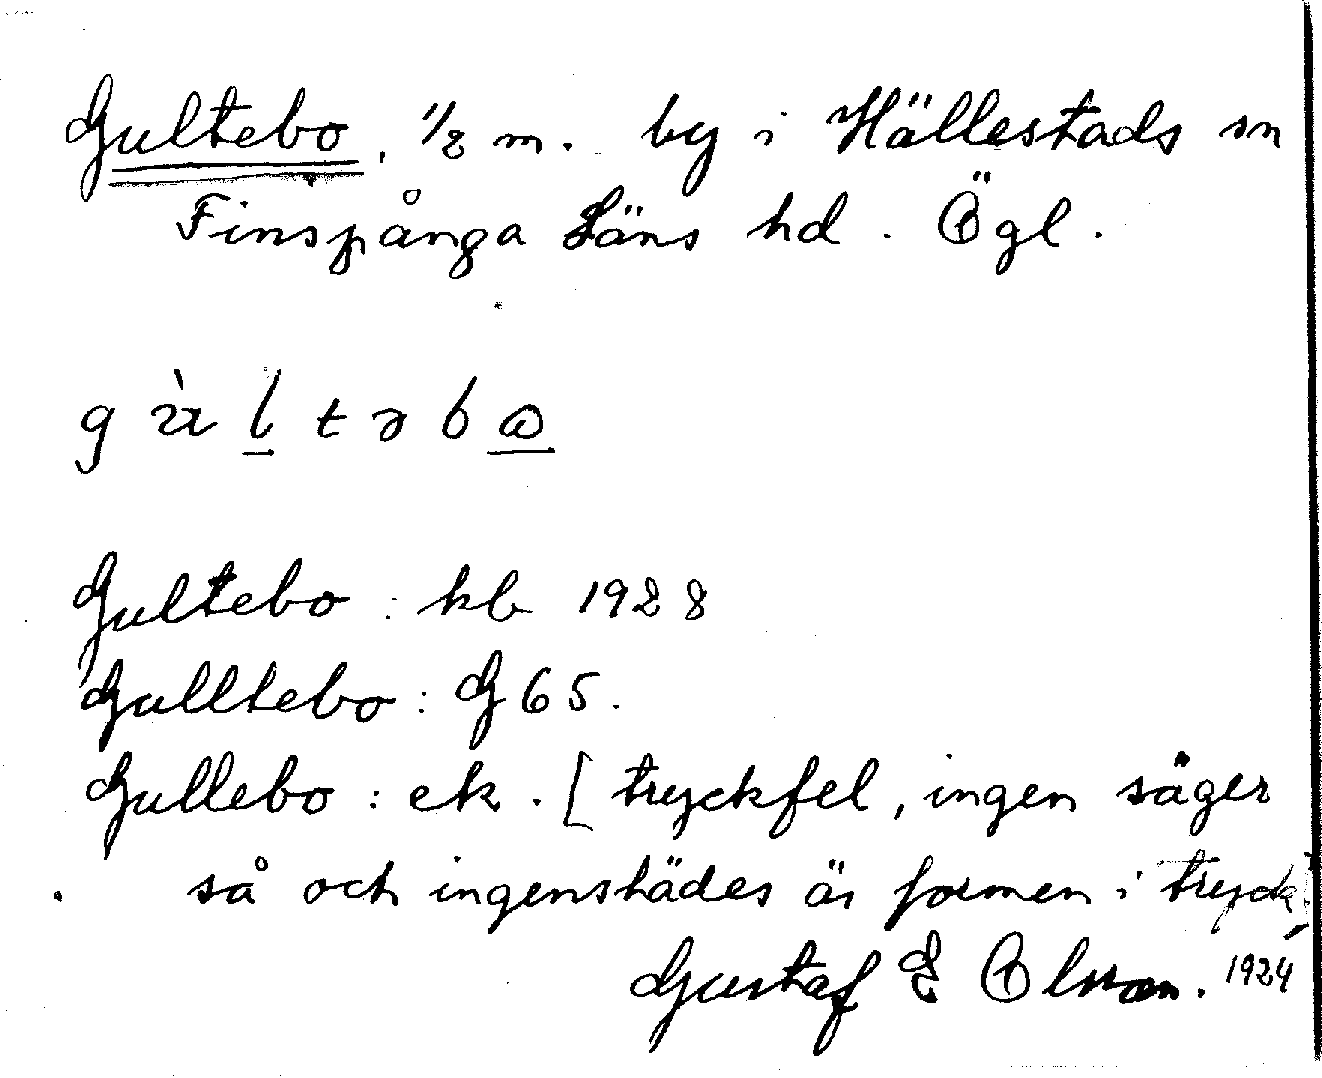 Gultebo, 1/8 m. by i Hällestads sn
Finspånga Läns hd. Ögl.
Gultebo: kb 1928
Gulltebo: G 65.
Gullebo: ek. [tryckfel, ingen säger
så och ingenstädes är formen i tryck]
Gustaf E Olsson. 1924